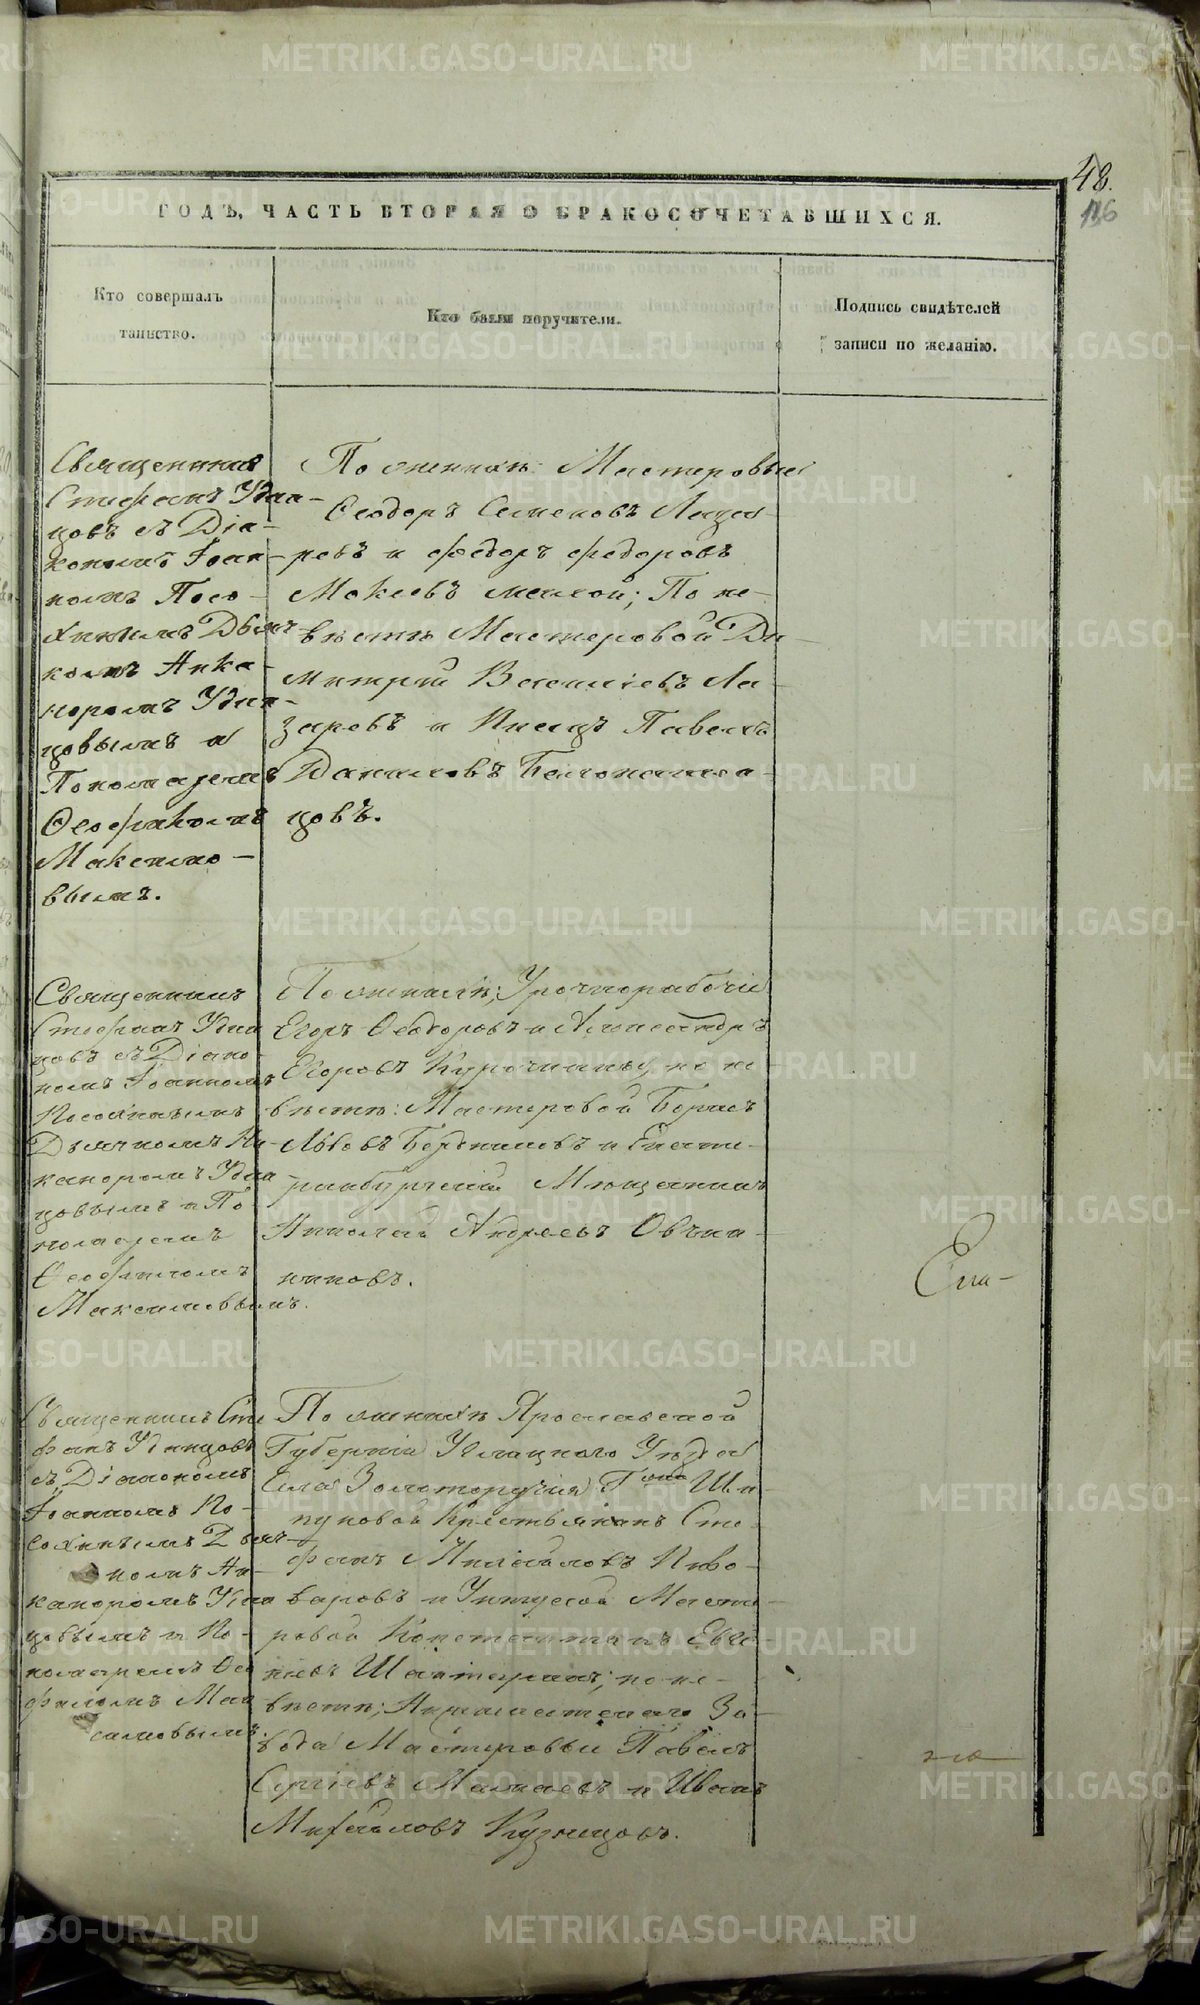 48.
116
ГОДЪ, ЧАСТЬ ВТОРАЯ О БРАКОСОЧЕТАВШИХСЯ.
Кто совершалъ
таинство.
Кто были поручители.
Подпись свидѣтелей
записи по желанію.
Священникъ
Стефанъ Удин-
цовъ съ Діа-
кономъ Іоан-
номъ Посо-
хинымъ Дьяч-
комъ Ника-
норомъ Удин-
цовымъ и
Пономаремъ
Ѳеофиломъ
Максимо-
вымъ.
По женихѣ: Мастеровые
Ѳеодоръ Семеновъ Лаза-
ревъ и Ѳедоръ Ѳедоровъ
Мокеевъ меньшой; По не-
вѣстѣ Мастеровой Ди-
митрій Васильевъ Ла-
заревъ и Писецъ Павелъ
Даниловъ
цовъ.
Священникъ
Стефанъ Удин
цовъ съ Діако-
номъ Іоанномъ
Посохинымъ
Дьячкомъ Ни-
каноромъ Удин
цовымъ и По
номаремъ
Ѳеофиломъ
Максимовымъ.
По женихѣ; Урочнорабочіе
Егоръ Ѳеодоровъ и Александръ
Егоровъ Курочкины, по не-
вѣстѣ: Мастеровой Борисъ
Львовъ и Екате-
ринбургскій Мѣщанинъ
Николай Андреевъ Овчин-
никовъ.
Ека-
Священникъ Сте
фанъ Удинцовъ
съ Діакономъ
Іоанномъ По-
сохинымъ Дьяч-
комъ Ни-
каноромъ Удин
цовымъ и По-
номаремъ Ѳео
филомъ Мак
симовымъ.
По женихѣ Ярославской
Губерніи Углицкаго Уѣзда
Села Золоторучья Г-жи Ши-
пуновой Крестьянинъ Сте
фанъ Михайловъ Пиво-
варовъ и Уктуской Масте-
ровой Константинъ Евге-
ніевъ по не-
вѣстѣ; За-
вода Мастеровые Павелъ
Сергіевъ и Иванъ
Михайловъ Кузнецовъ.
METRIKI.GASO-URAL.RU